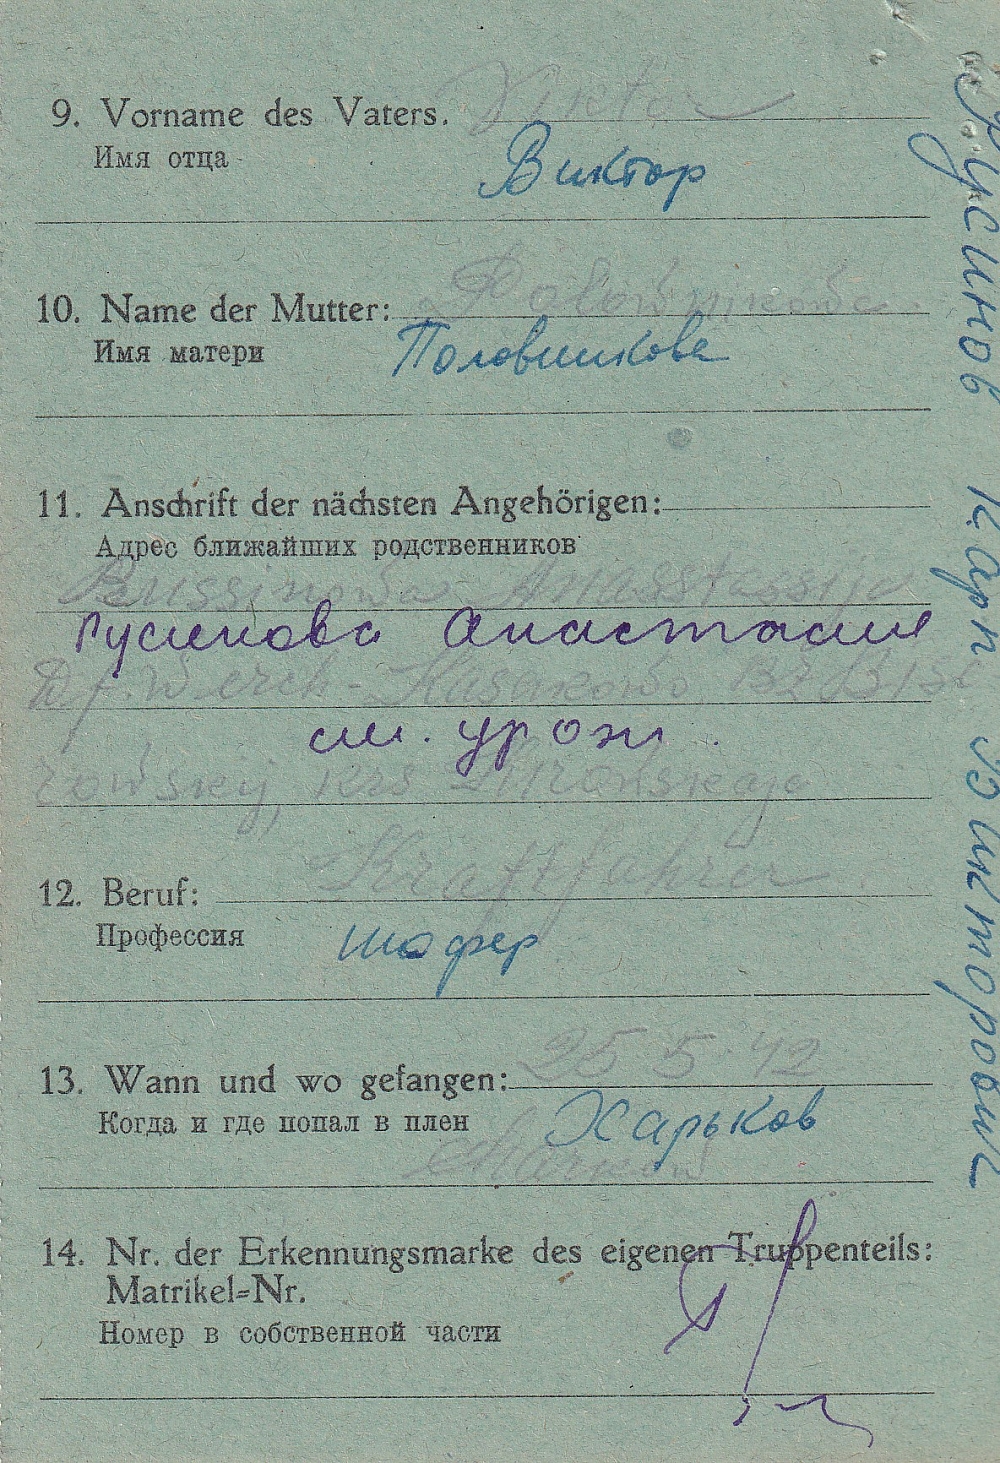 9. Vorname des Vaters. Viktor
Имя отца Виктор
10. Name der Mutter:
Имя матери Половникова
11. Anschrift der nächsten Angehörigen:
Адрес ближайших родственников
Russinowa Anasstassija
Русинова Анастасия
Df. Werch-
см. урож.
12. Beruf: Kraftfahrer
Профессия шофер
13. Wann und wo gefangen: 25 5 42
Когда и где попал в плен Харьков
Charkow
14. Nr. der Erkennungsmarke des eigenen Truppenteils:
Matrikel=Nr.
Номер в собственной части
Русинов Карп Викторович